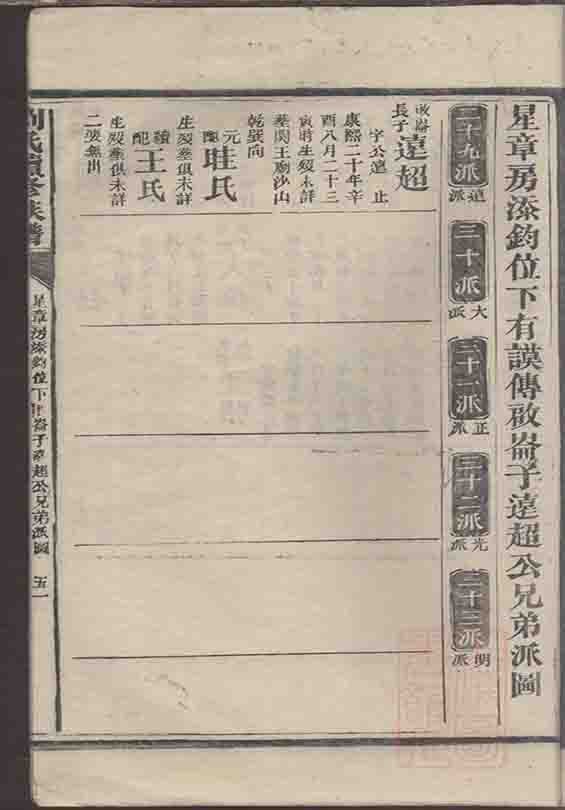 星章房添鈞位下有謨傳啟崙子遠超公兄弟派圖
二十九派
遠派
三十派
大派
三十一派
正派
三十二派
光派
三十三派
明派
啟崙
長子遠超
字公遠 止
康熙二十年辛
酉八月二十三
寅時生歿未詳
葬関王廟沙山
乾巽向
元配 眭氏
生歿葬俱未詳
續配 王氏
生歿葬俱未詳
二娶無出
劉氏續修族譜
星章房添鈞位下 崙子遠超公兄弟派圖
五一